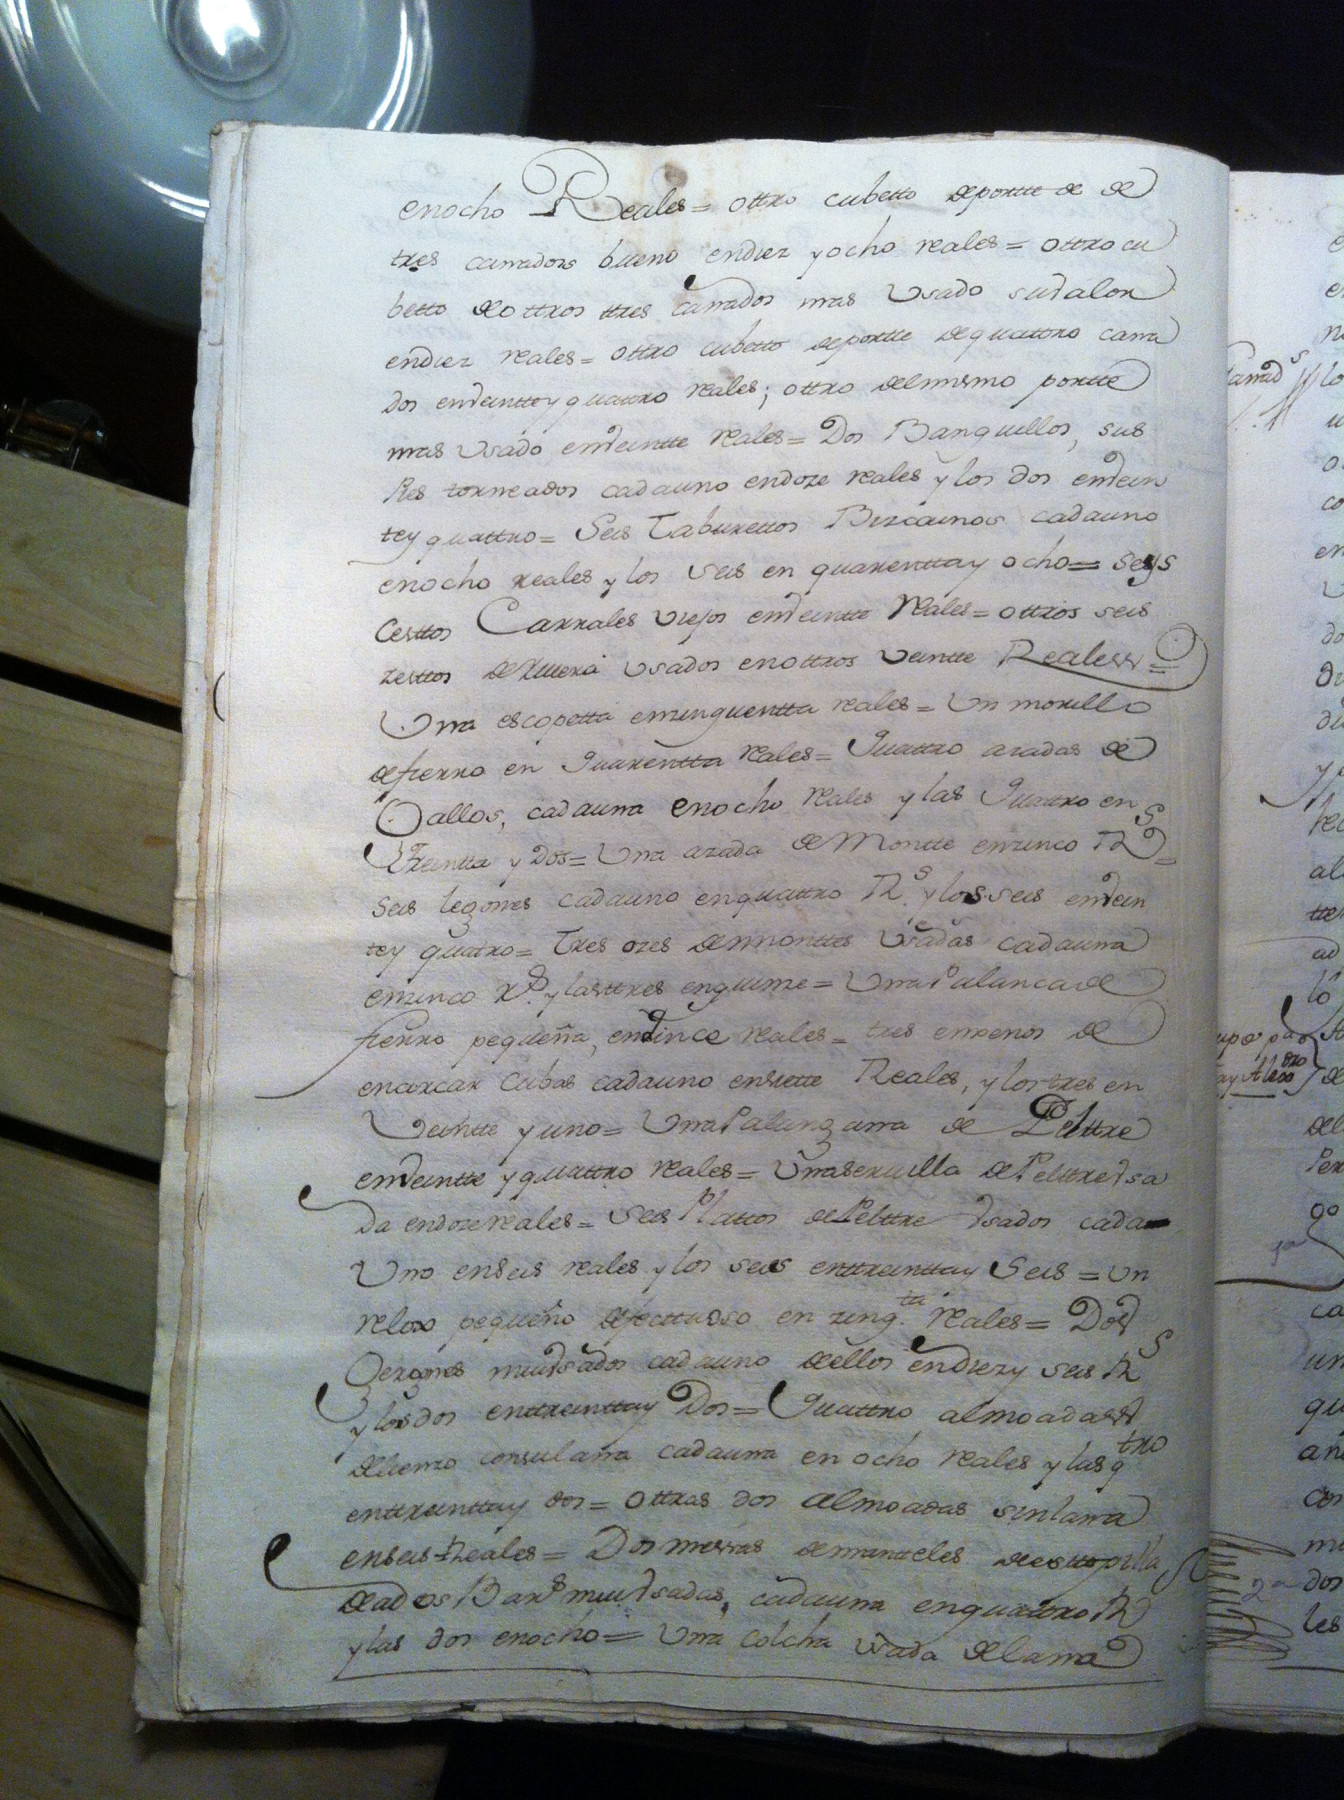 enocho Reales= ottro cubetto deportte de de
tres carrados bueno endiez yocho reales= ottro cu
betto deottros ttres carrados mas Vsado suvalor
endiez reales= ottro cubetto deportte dequattro carra
dos enveinttey quattro reales; ottro delmismo portte
mas Vsado enveintte reales= Dos Banquillos, sus
Pies torneados cadauno endoze reales y los dos envein
tey quattro= Seis Taburettes Bizcainos cadauno
enocho reales y los seis en quarenttay ocho= seys
Cesttos Carrales viejos enveintte Reales= ottros seis
zesttos Vsados enottros veintte Reales=
Vna escopetta enzinquentta reales= Vn morillo
defierro en quarentta reales= quattro azadas de
Vallos, cadauna enocho reales y las quattro en
Treintta y dos= Vna azada de Montte enzinco Rs=
Seis legones cadauno enquattro Rs. y los seis envein
tey quattro= Tres ozes demonttes Vsadas cadauna
enzinco Rs. y lasttres enquinze= Vna Palanca de
fierro pequeña, enquince reales= tres entenos de
encarcar Cubas cadauno ensiette Reales, y lostres en
Veintte y uno= Vna Palanzana de Pelttre
enveintte y quattro reales= Vnaservilla de Pelttre Vsa
da endozereales= seis Plattos de Pelttre Vsados cada
Vno enseis reales y los seis enttreinttay Seis= Un
relox pequeño defecttuoso en zinq.ta reales= Dos
Gergones muivsados cadauno dellos endiezy seis Rs
y los dos enttreinttay Dos= Quattro almoadas
delienzo consulana cadauna en ocho reales y las qtro
enttreinttay dos= Ottras dos almoadas sinlana
enseis Reales= Dos messas demantteles deesttopilla
deados Bars muiVsadas, cadauna enquattro Rs
y las dos enocho= Vna Colcha Vsada delana
carrads